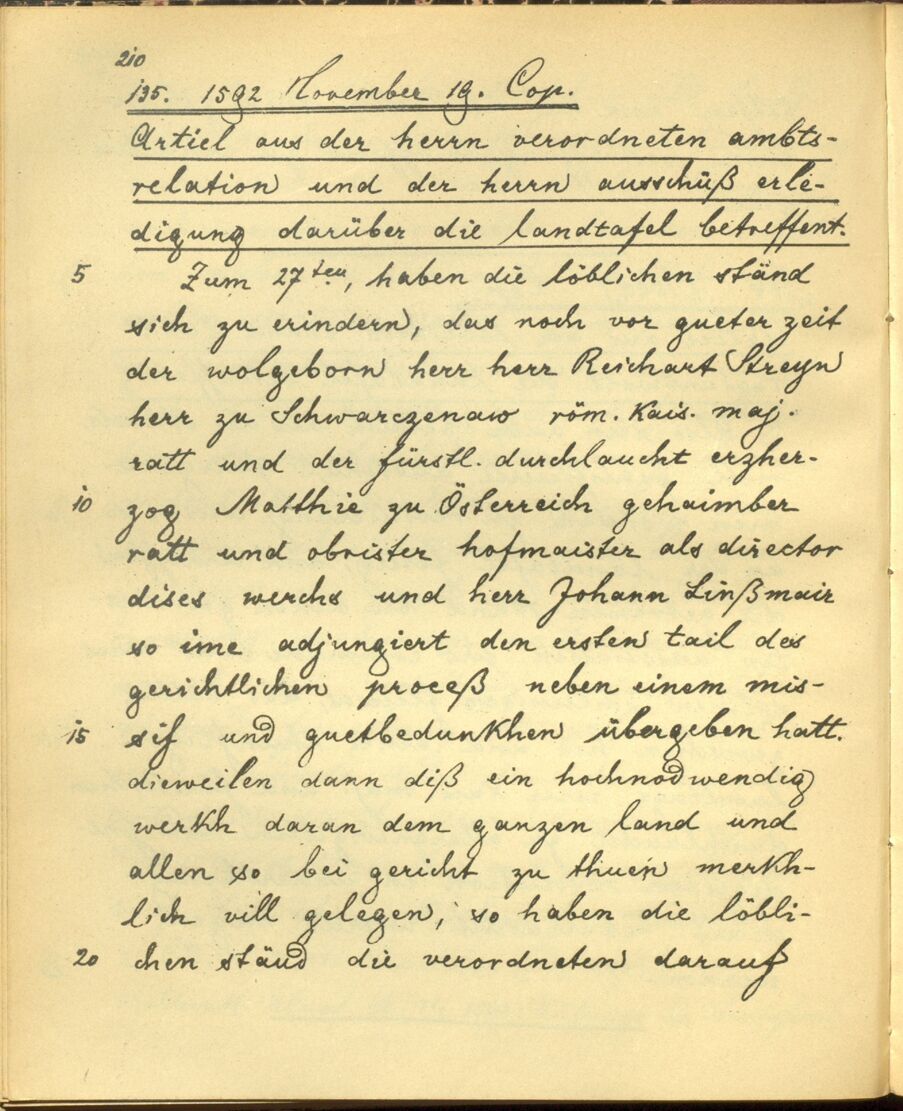 210
135. 1592 November 19. Cop.
Artiel aus der herrn verordneten ambts-
relation und der herrn ausschüß erle-
digung darüber die landtafel betreffent.
5 Zum 27ten, haben die löblichen ständ
sich zu erindern, das noch vor gueter zeit
der wolgeborn herr herr Reichart Streyn
herr zu Schwarczenaw röm. Kais. maj.
ratt und der fürstl. durchlaucht erzher-
10 zog Matthie zu Österreich gehaimber
ratt und obrister hofmaister als director
dises werchs und herr Johann Linßmair
so ime adjungiert den ersten tail des
gerichtlichen proceß neben einem mis-
15 sif und guetbedunkhen übergeben hatt.
dieweilen dann diß ein hochnodwendig
werkh daran dem ganzen land und
allen so bei gericht zu thuen merkh-
lich vill gelegen, so haben die löbli-
20 chen ständ die verordneten darauf